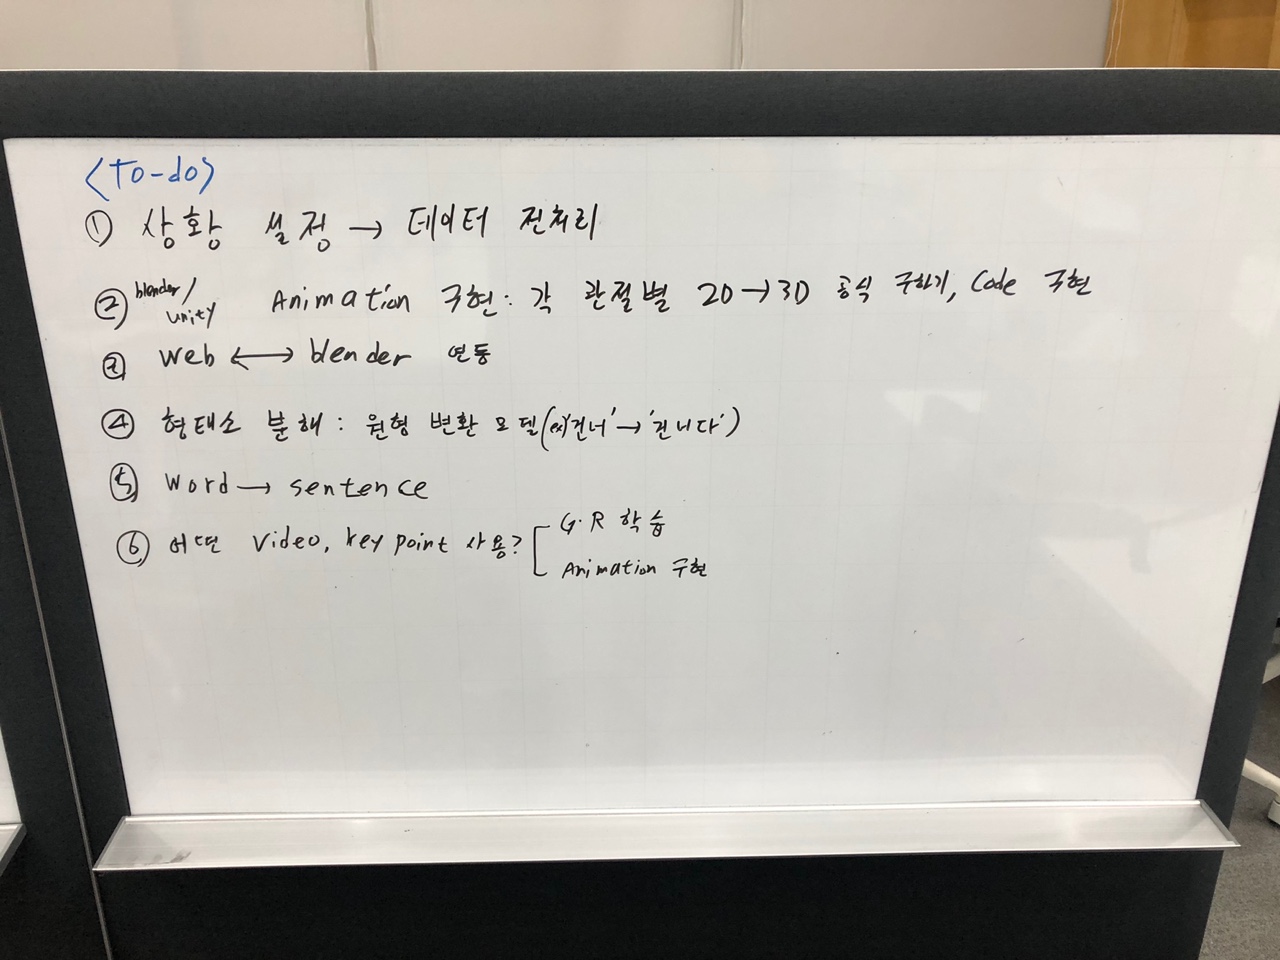 <To-do>
① 상황 설정 → 데이터 전처리
② blender/unity Animation 구현: 각 관절별 2D→3D 공식 구하기, Code 구현
③ Web ⟷ blender 연동
④ 형태소 분해 : 원형 변환 모델(ex)'건너' → '건너다')
⑤ Word → sentence
⑥ 어떤 Video, key point 사용?
G·R 학습
Animation 구현